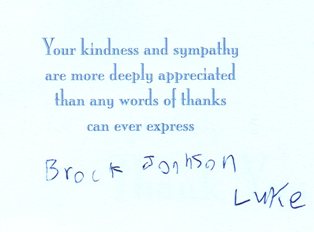 Your kindness and sympathy
are more deeply appreciated
than any words of thanks
can ever express
Brock Jonhson
Luke